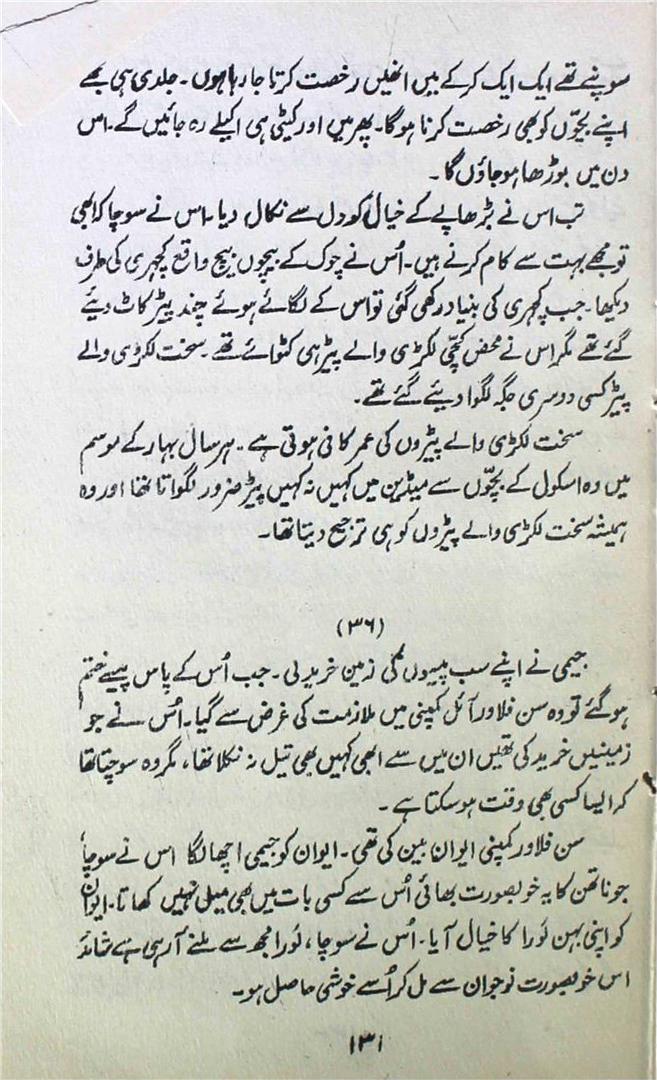 سوپنے تھے ایک ایک کرکے میں انھیں رخصت کرتا جا رہا ہوں۔ جلدی ہی مجھے
اپنے بچّوں کو بھی رخصت کرنا ہوگا۔ پھر میں اور کیٹی ہی اکیلے رہ جائیں گے۔ اس
دن میں بوڑھا ہو جاؤں گا۔
تب اس نے بڑھاپے کے خیال کو دل سے نکال دیا۔ اس نے سوچا کہ ابھی
تو مجھے بہت سے کام کرنے ہیں۔ اُس نے چوک کے بیچوں بیچ واقع کچہری کی طرف
دیکھا۔ جب کچہری کی بنیاد رکھی گئی تو اس کے لگائے ہوئے چند پیڑ کاٹ دیئے
گئے تھے مگر اس نے محض کچّی لکڑی والے پیڑ ہی کٹوائے تھے۔ سخت لکڑی والے
پیڑ کسی دوسری جگہ لگوا دیئے گئے تھے۔
سخت لکڑی والے پیڑوں کی عمر کافی ہوتی ہے۔ ہر سال بہار کے موسم
میں وہ اسکول کے بچّوں سے میڈین میں کہیں نہ کہیں پیڑ ضرور لگواتا تھا اور وہ
ہمیشہ سخت لکڑی والے پیڑوں کو ہی ترجیح دیتا تھا۔
(۳۶)
جیمی نے اپنے سب پیسوں کی زمین خرید لی۔ جب اُس کے پاس پیسے ختم
ہو گئے تو وہ سن فلاور آئل کمپنی میں ملازمت کی غرض سے گیا۔ اُس نے جو
زمینیں خرید کی تھیں ان میں سے ابھی کہیں بھی تیل نہ نکلا تھا، مگر وہ سوچتا تھا
کہ ایسا کسی بھی وقت ہو سکتا ہے۔
سن فلاور کمپنی ایوان بین کی تھی۔ ایوان کو جیمی اچھا لگا اس نے سوچا
جوناتھن کا یہ خوبصورت بھائی اُس سے کسی بات میں بھی میل نہیں کھاتا۔ ایوان
کو اپنی بہن لورا کا خیال آیا۔ اُس نے سوچا، لورا مجھ سے ملنے آرہی ہے شائد
اس خوبصورت نوجوان سے مل کر اُسے خوشی حاصل ہو۔
۱۳۱